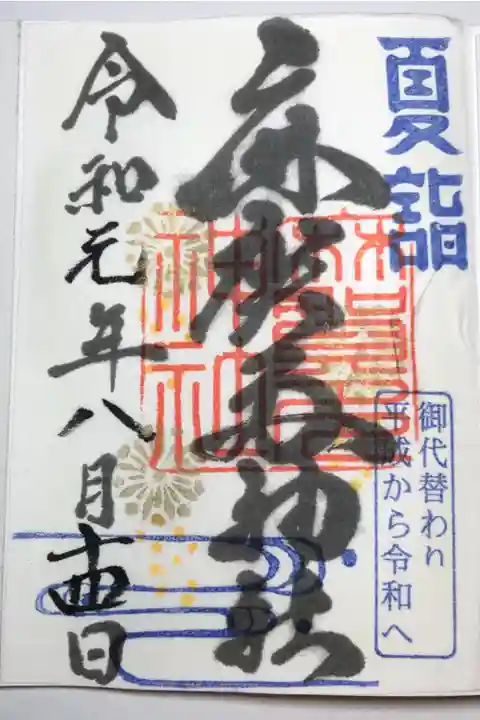 夏詣
御代替わり
平成から令和へ
麻賀多神社
令和元年八月十四日